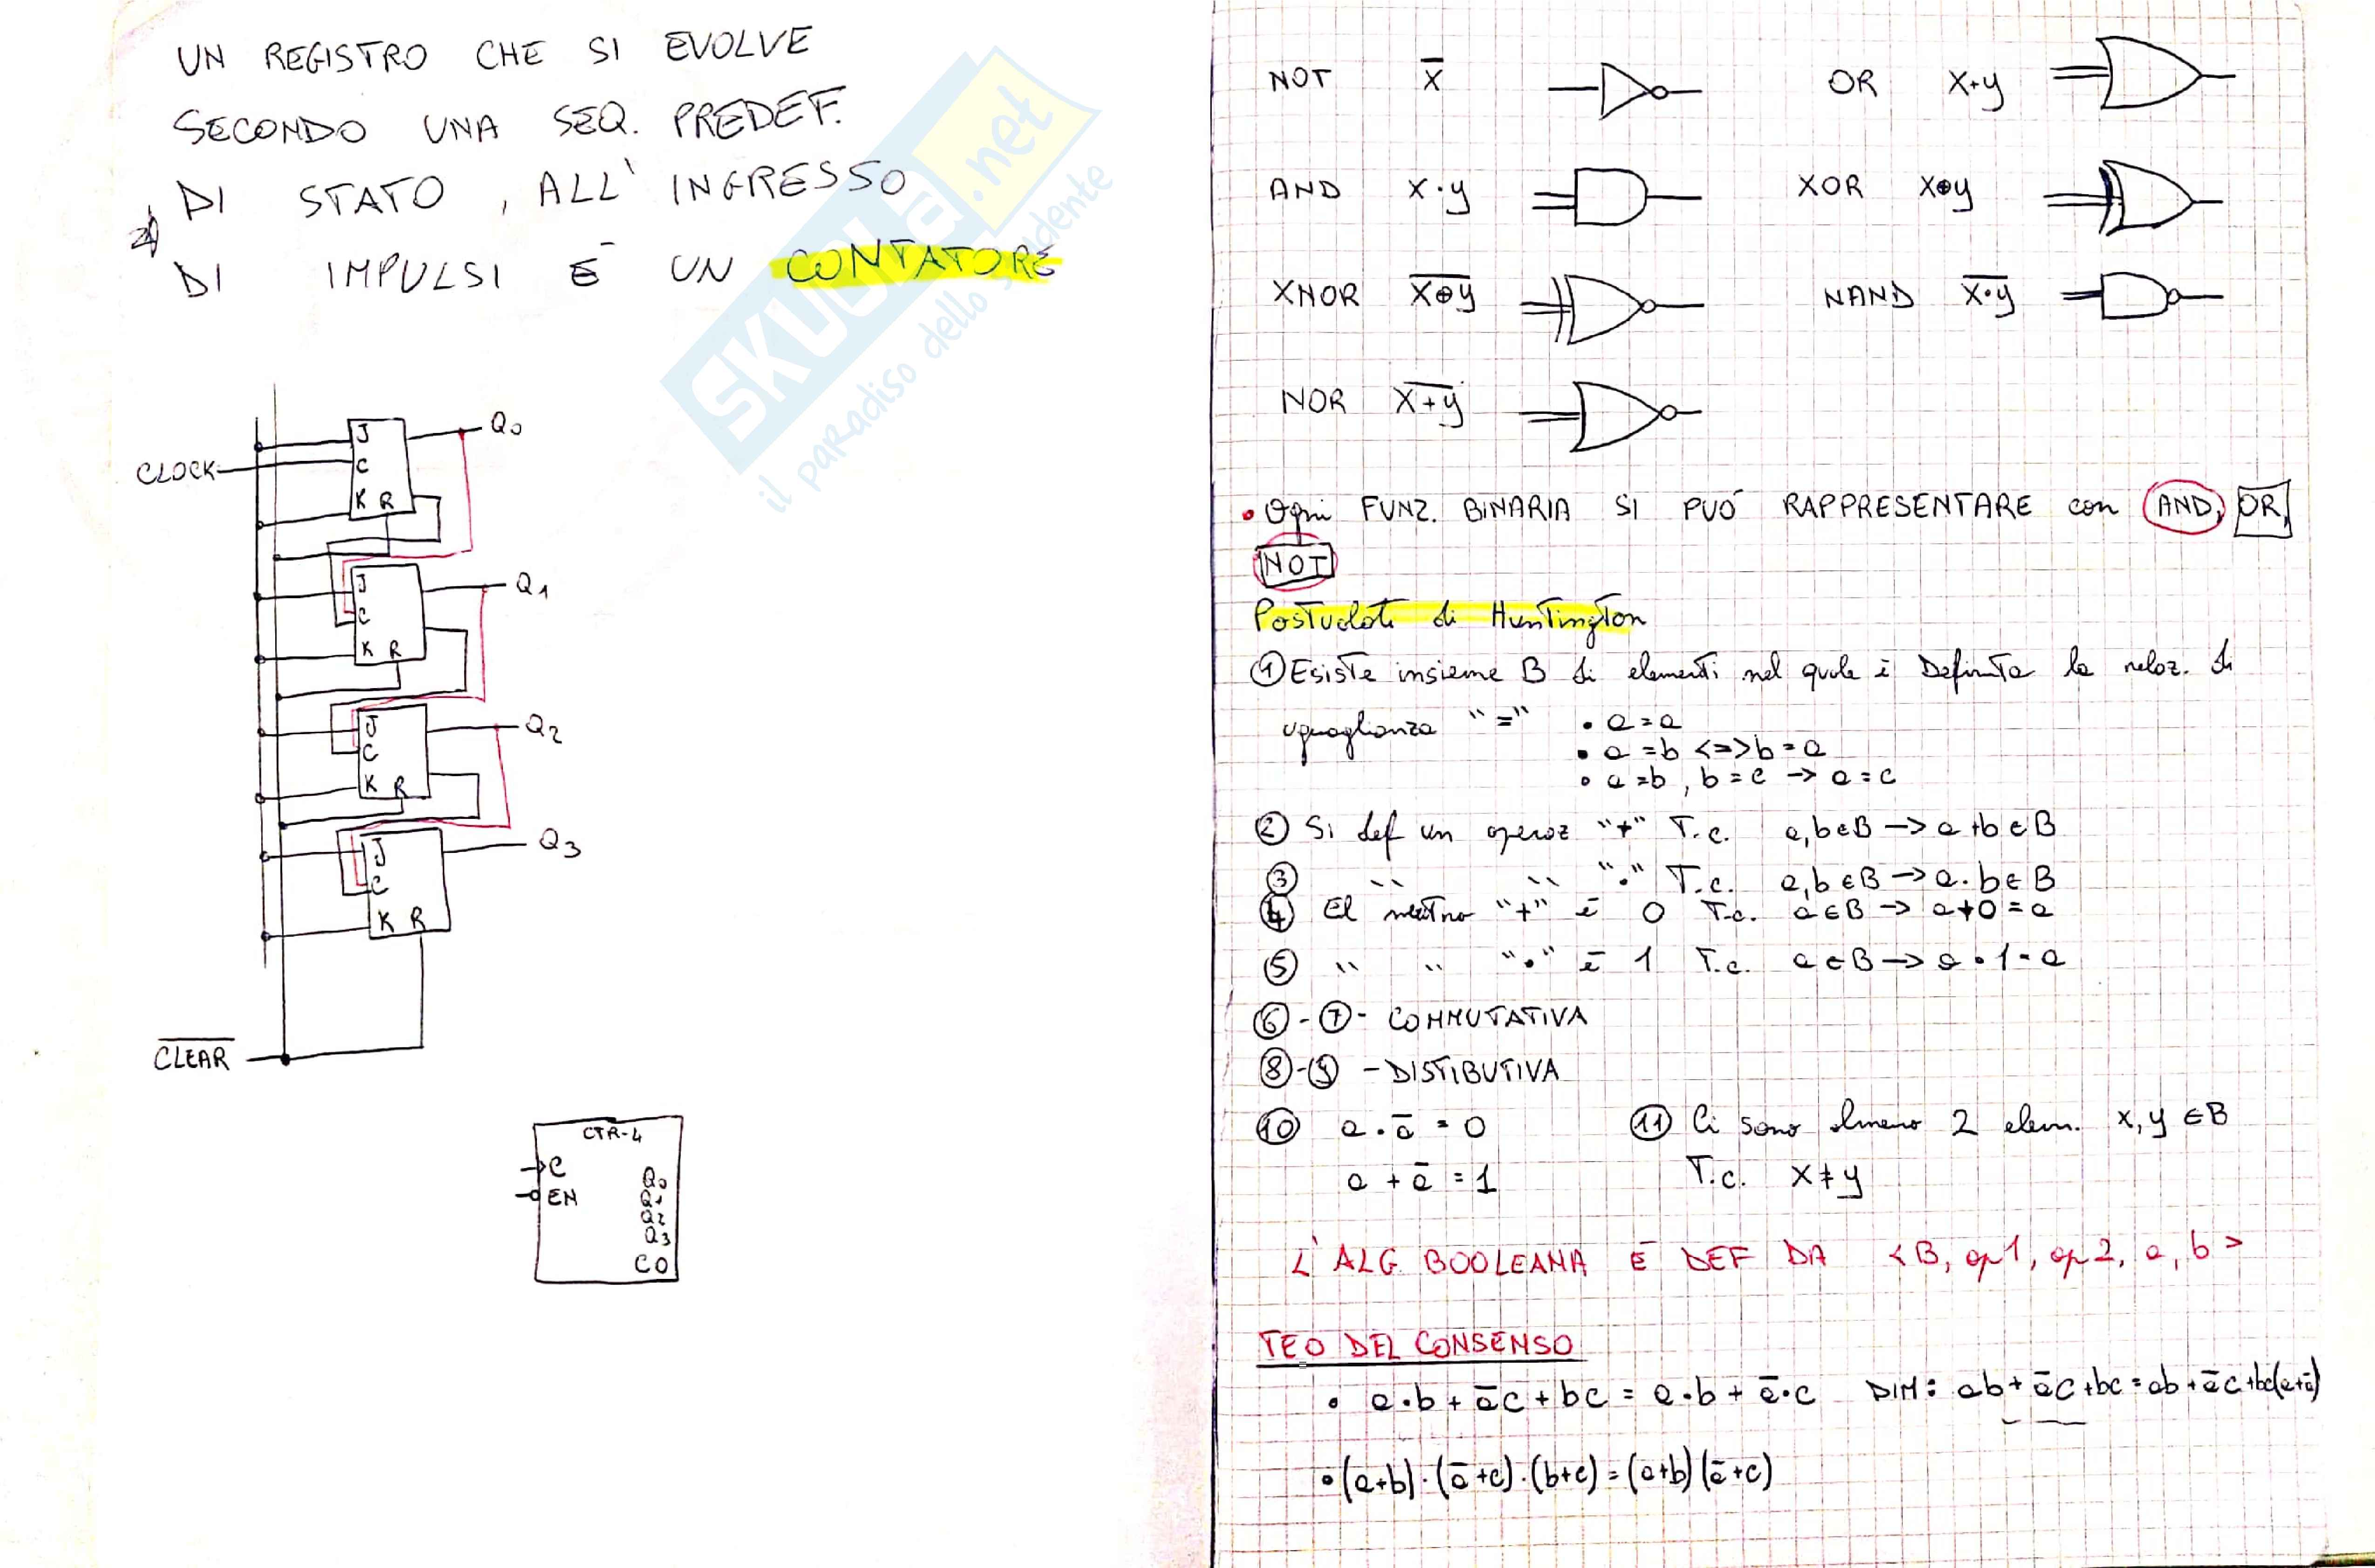 UN REGISTRO CHE SI EVOLVE
SECONDO UNA SEQ. PREDEF.
DI STATO, ALL'INGRESSO
DI IMPULSI È UN CONTATORE
SKUOLA.net
il paradiso dello studente
J
Q₀
CLOCK
C
K R
J
Q₁
C
K R
J
Q₂
C
K R
J
Q₃
C
K R
C̅L̅E̅A̅R̅
CTR-4
C
EN
Q₀
Q₁
Q₂
Q₃
CO
NOT x̅ OR x+y
AND x·y XOR x⊕y
XNOR x̅⊕̅y̅ NAND x̅·̅y̅
NOR x̅+̅y̅
• Ogni FUNZ. BINARIA SI PUÒ RAPPRESENTARE con AND, OR,
NOT
Postulati di Huntington
① Esiste insieme B di elementi nel quale è Definita la relaz. di
uguaglianza "=" • a=a
• a=b <=> b=a
• a=b, b=c → a=c
② Si def un operaz "+" T.c. a,b∈B → a+b∈B
③ " " "·" T.c. a,b∈B → a·b∈B
④ El neutro "+" è 0 T.c. a∈B → a+0=a
⑤ " " "·" è 1 T.c. a∈B → a·1=a
⑥-⑦- COMMUTATIVA
⑧-⑨ -DISTIBUTIVA
⑩ a·a̅=0 ⑪ Ci sono almeno 2 elem. x,y∈B
a+a̅=1 T.c. x≠y
L'ALG. BOOLEANA È DEF DA <B, op1, op2, a, b>
TEO DEL CONSENSO
• a·b+a̅c+bc=a·b+a̅·c DIM: ab+a̅c+bc=ab+a̅c+bc(a+a̅)
• (a+b)·(a̅+c)·(b+c)=(a+b)(a̅+c)